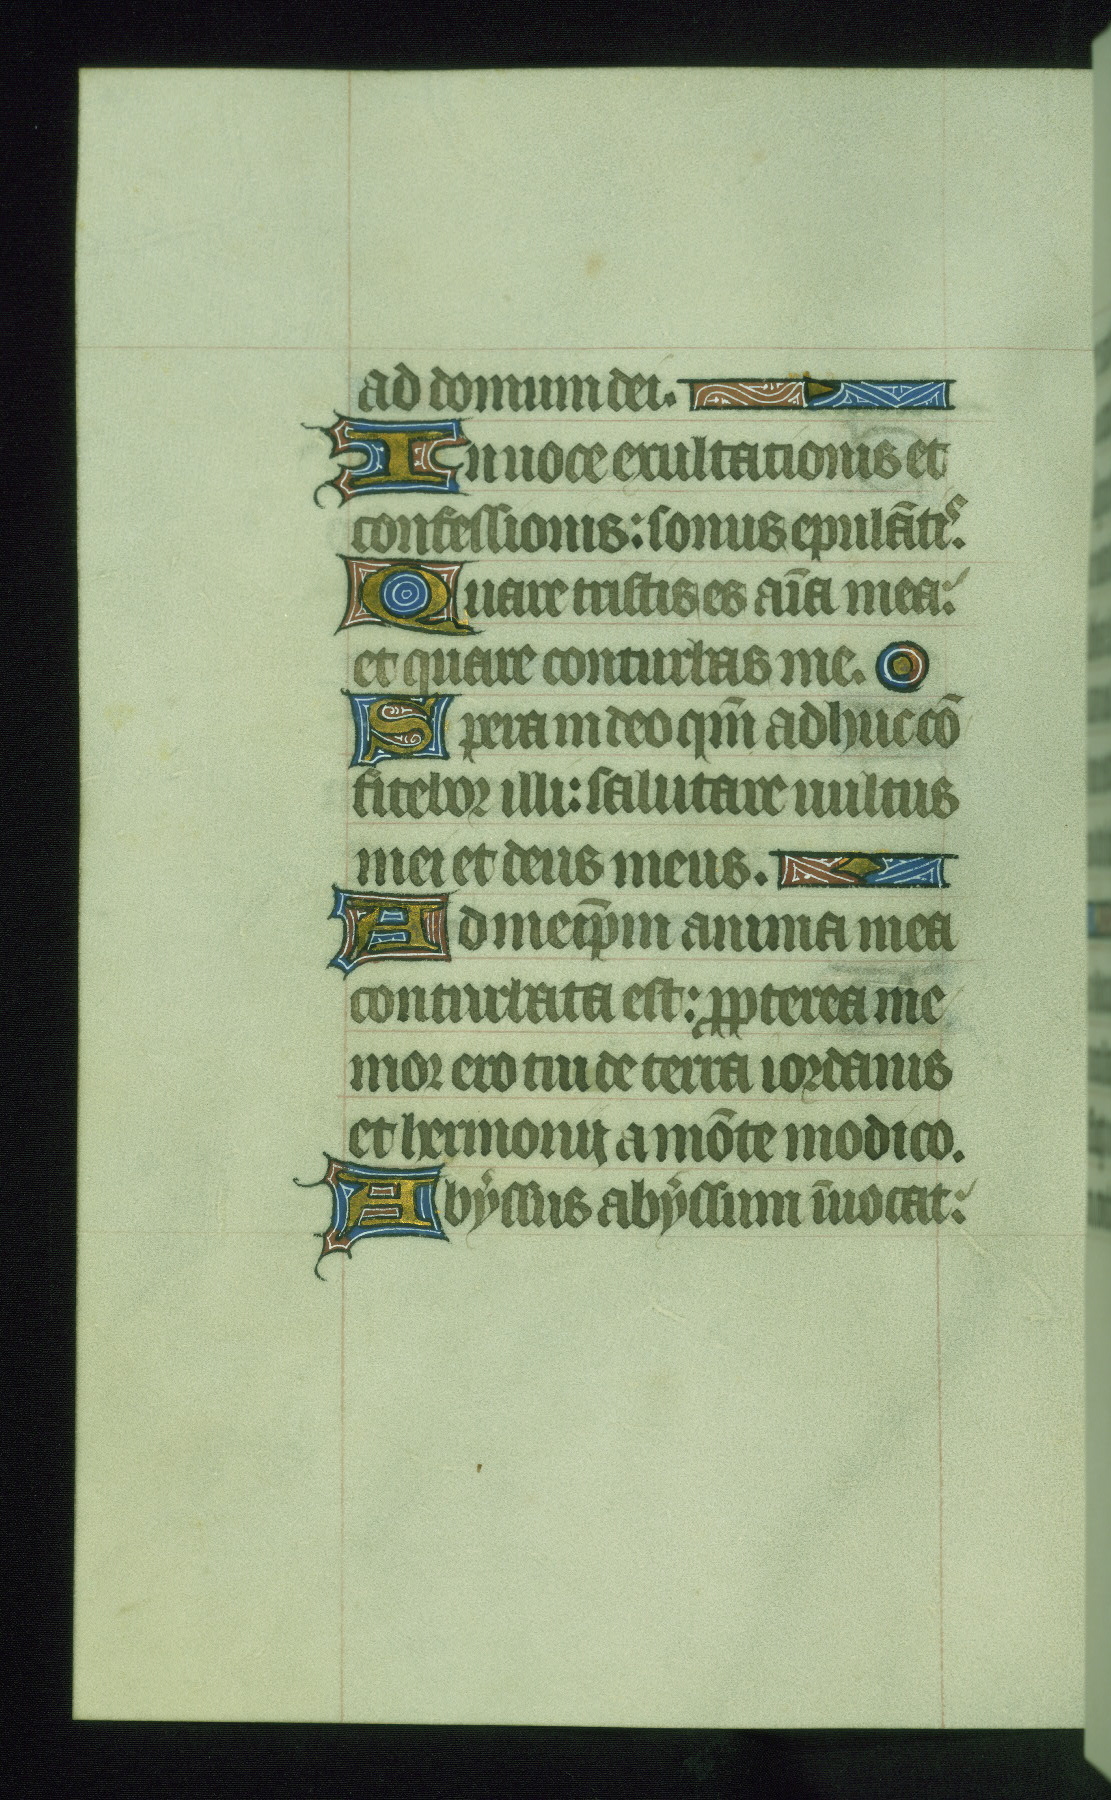 ad domum dei.
In uoce exultationis et
confessionis: sonus epulātis.
Quare tristis es aīa mea:
et quare conturbas me.
Spera in deo qm̄ adhuc cō
fitebor illi: salutare uultus
mei et deus meus.
Ad meip̄m anima mea
conturbata est: ꝓpterea me
mor ero tui de terra iordanis
et hermonij a mōte modico.
Abẏssus abẏssum īuocat: